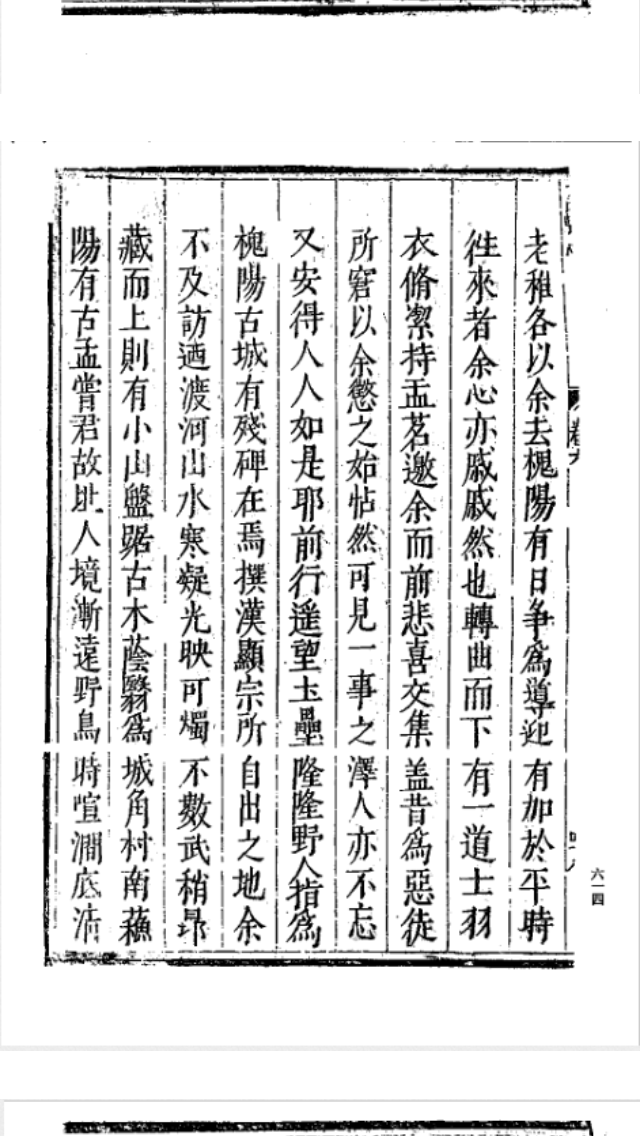 老稚各以余去槐陽有日爭爲導迎有加於平時
徃來者余心亦戚戚然也轉曲而下有一道士羽
衣脩潔持盂茗邀余而前悲喜交集盖昔爲惡徒
所窘以余懲之始帖然可見一事之澤人亦不忘
又安得人人如是耶前行遥望土壘隆隆野人指爲
槐陽古城有殘碑在焉撰漢顯宗所自出之地余
不及訪迺渡河山水寒凝光映可燭不數武稍昂
藏而上則有小山盤踞古木蔭翳爲城角村南蘓
陽有古孟嘗君故址人境漸遠野鳥時喧澗底沽
卷六
六一四